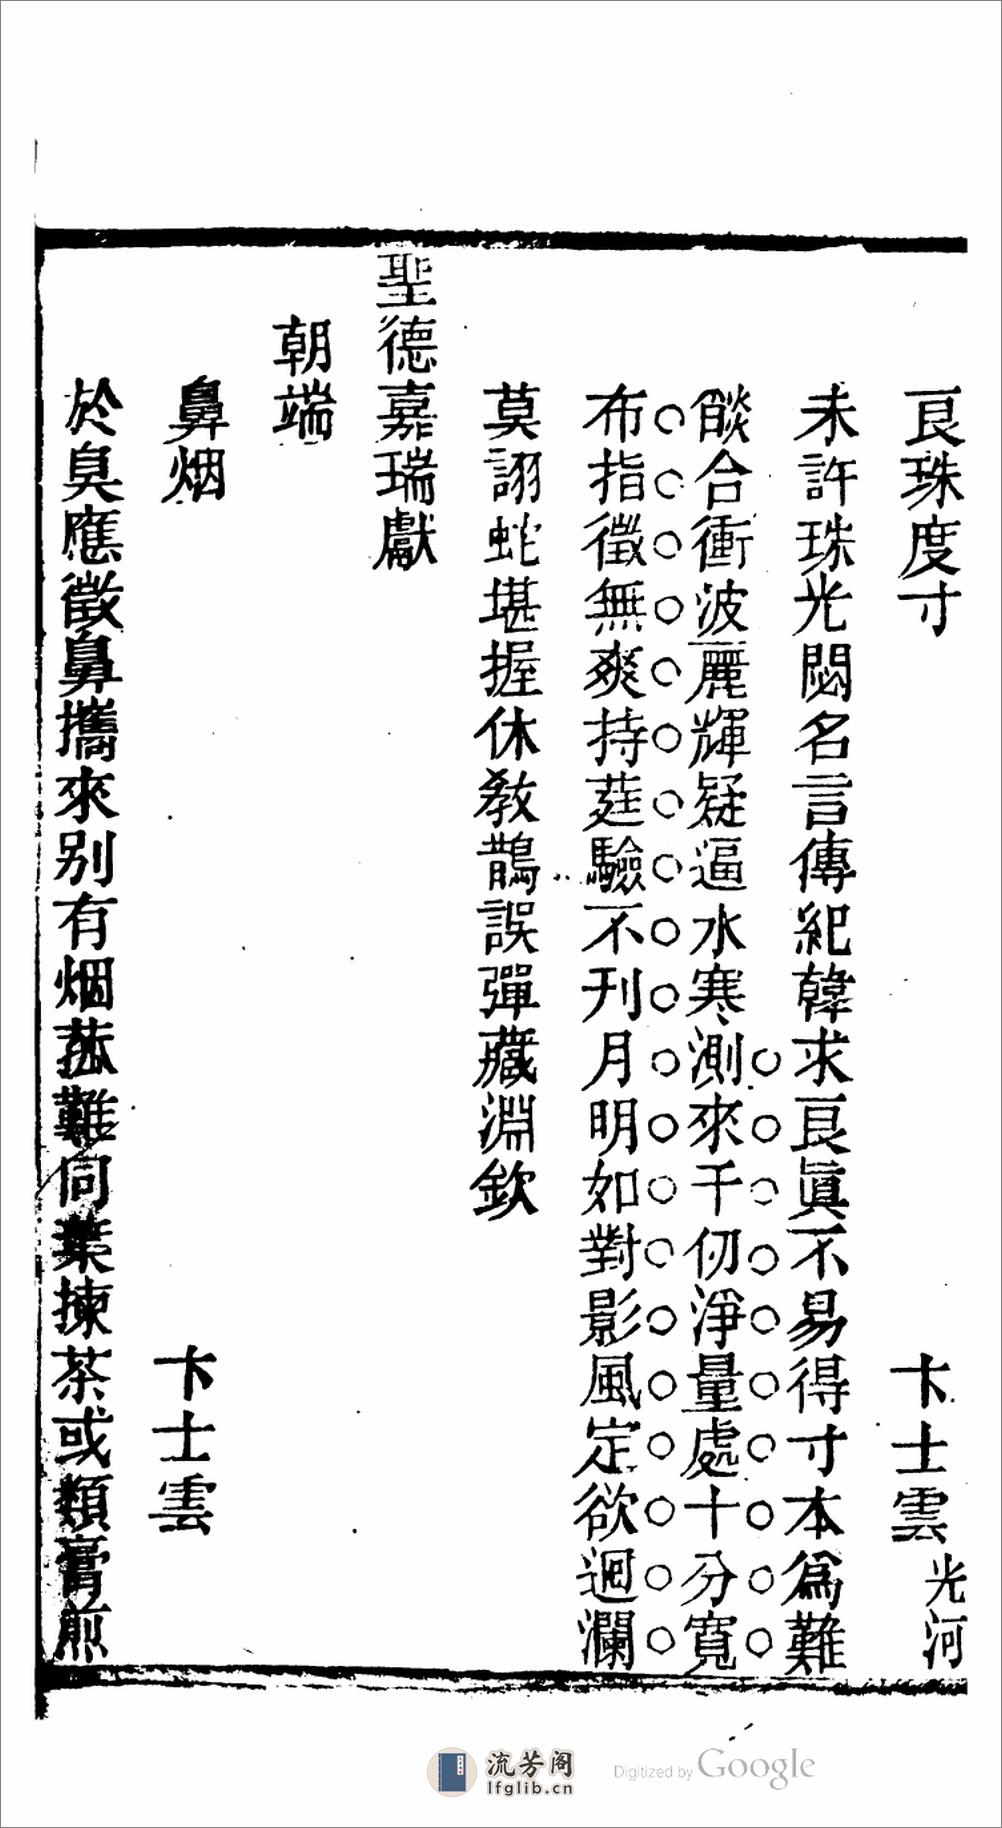 良珠度寸 卞士雲 光河
未許珠光閟名言傳紀韓求良眞不易得寸本爲難
燄合衝波麗輝疑逼水寒測來千仞淨量處十分寬
布指徵無爽持莛驗不刊月明如對影風定欲迴瀾
莫詡蛇堪握休教鵲誤彈藏淵欽
聖德嘉瑞獻
朝端
鼻烟 卞士雲
於臭應徵鼻攜來别有烟菰難同葉揀茶或類膏煎
流芳阁
lfglib.cn
Digitized by Google